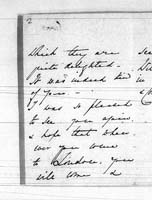 2
Which they are
quite delighted.
It was indeed kind
of you –
I was so pleased
to see you again
& hope that when
ever you come
to London, you
will come &